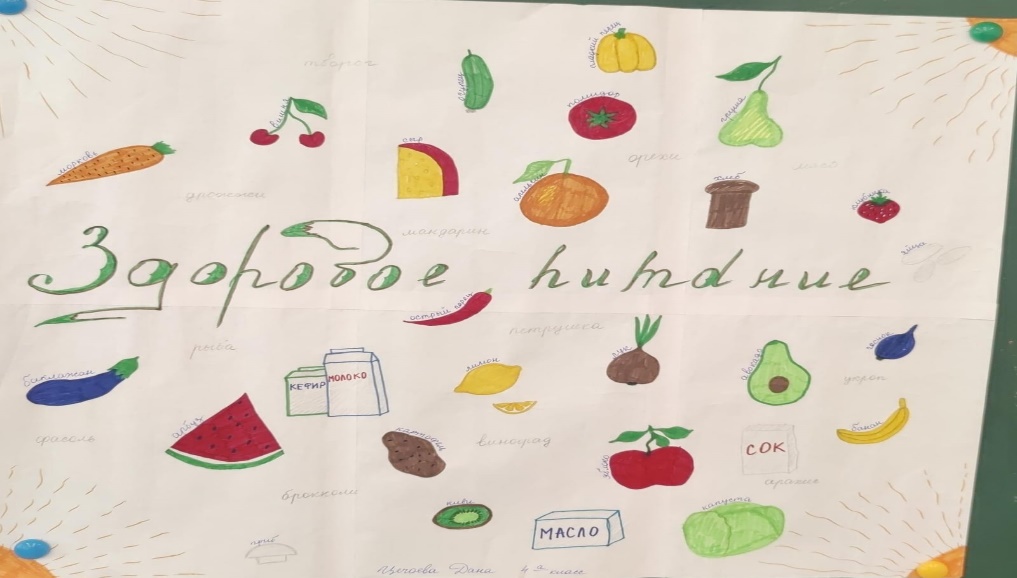 творог
сладкий перец
огурец
помидор
груша
вишня
морковь
сыр
орехи
мясо
дрожжи
апельсин
хлеб
клубника
мандарин
яйца
Здоровое питание
острый перец
петрушка
рыба
лук
баклажан
КЕФИР
МОЛОКО
лимон
авокадо
укроп
арбуз
фасоль
картофель
виноград
яблоко
СОК
банан
арахис
брокколи
киви
капуста
МАСЛО
гриб
Цечоева Дана 4 "а" класс